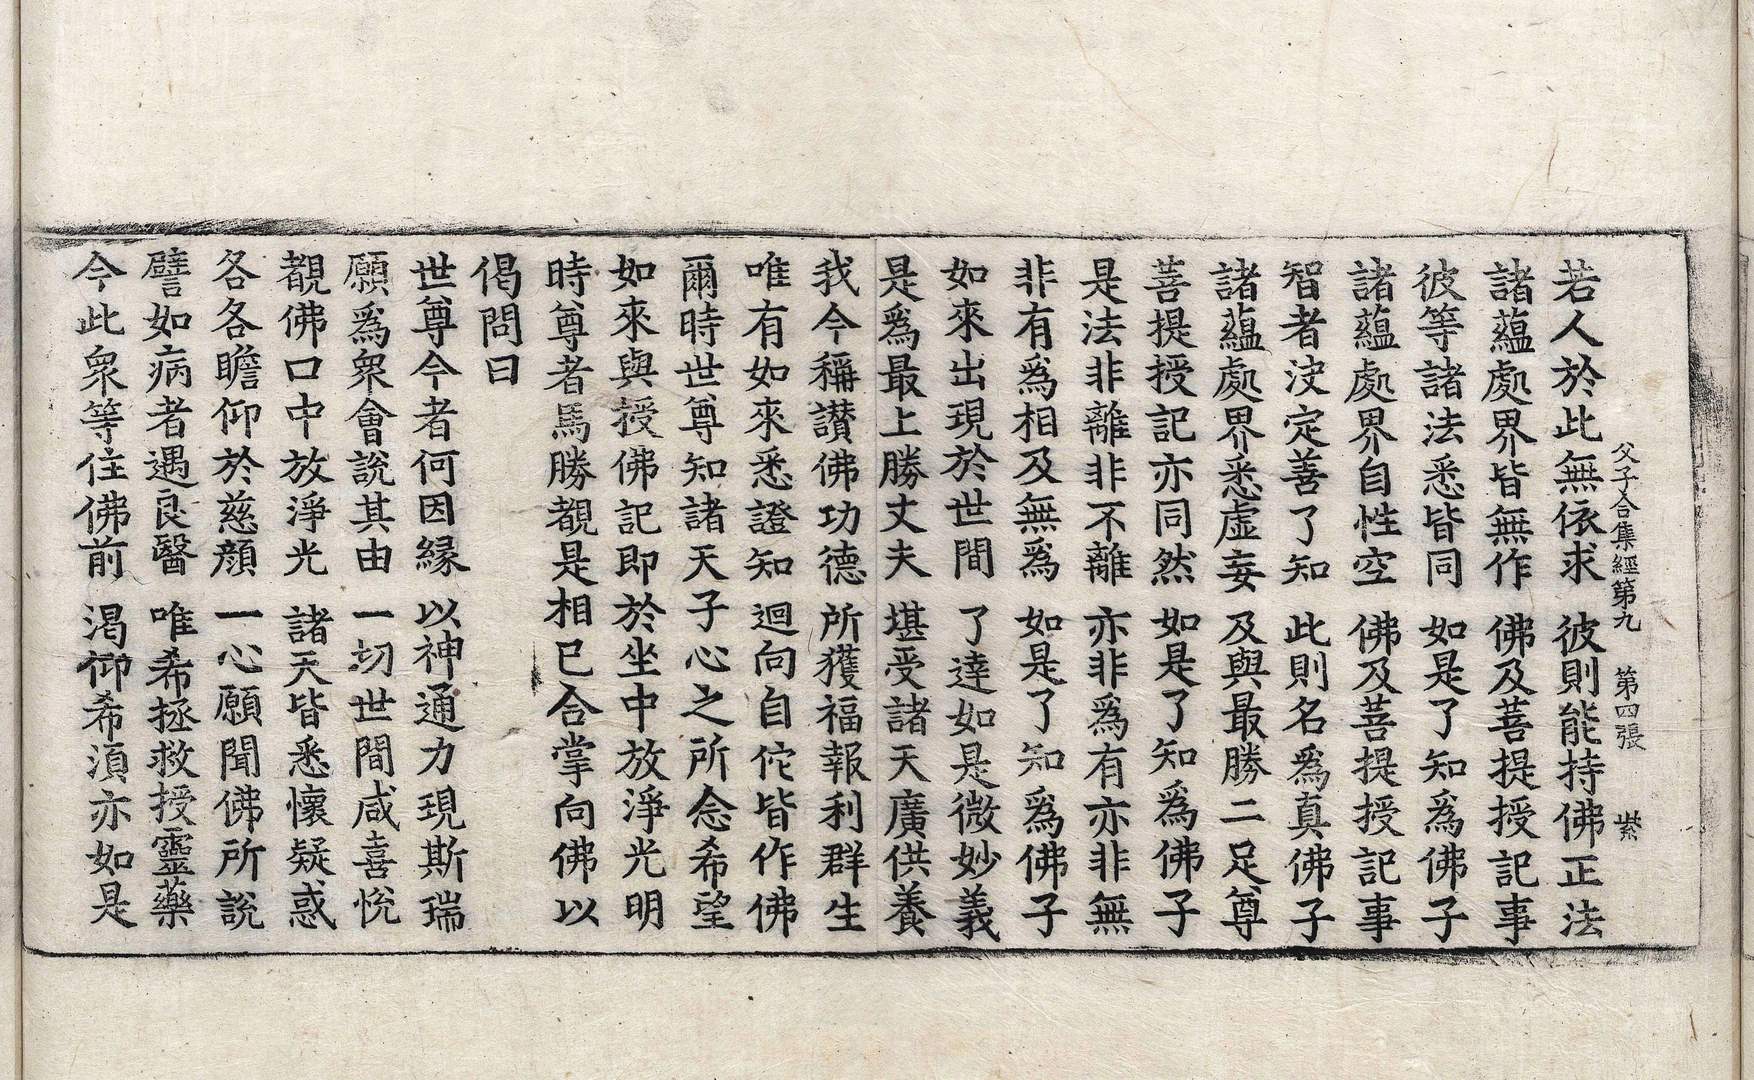 父子合集經第九　第四張　紫
若人於此無依求　彼則能持佛正法
諸蘊處界皆無作　佛及菩提授記事
彼等諸法悉皆同　如是了知為佛子
諸蘊處界自性空　佛及菩提授記事
智者決定善了知　此則名為真佛子
諸蘊處界悉虛妄　及與最勝二足尊
菩提授記亦同然　如是了知為佛子
是法非離非不離　亦非為有亦非無
非有為相及無為　如是了知為佛子
如來出現於世間　了達如是微妙義
是為最上勝丈夫　堪受諸天廣供養
我今稱讃佛功德　所獲福報利群生
唯有如來悉證知　迴向自佗皆作佛
爾時世尊知諸天子心之所念希望
如來與授佛記即於坐中放淨光明
時尊者馬勝覩是相已合掌向佛以
偈問曰
世尊今者何因緣　以神通力現斯瑞
願為衆會說其由　一切世間咸喜悅
覩佛口中放淨光　諸天皆悉懷疑惑
各各瞻仰於慈顏　一心願聞佛所說
譬如病者遇良醫　唯希拯救授靈藥
今此衆等住佛前　渴仰希湏亦如是